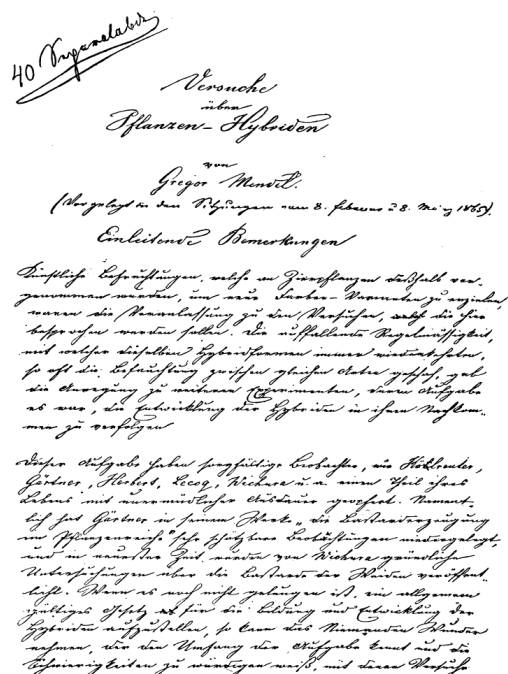 40 Separatabdr.
Versuche
über
Pflanzen-Hybriden
von
Gregor Mendel.
(Vorgelegt in den Sitzungen vom 8. Februar u 8. März 1865).
Einleitende Bemerkungen
Künstliche Befruchtungen, welche an Zierpflanzen deßhalb vor-
genommen wurden, um neue Farben-Varianten zu erzielen,
waren die Veranlassung zu den Versuchen, welche die hier
besprochen werden sollen. Die auffallende Regelmässigkeit,
mit welcher dieselben Hybridformen immer wiederkehrten,
so oft die Befruchtung zwischen gleichen Arten geschah, gab
die Anregung zu weiteren Experimenten, deren Aufgabe
es war, die Entwicklung der Hybriden in ihren Nachkom-
men zu verfolgen
Dieser Aufgabe haben sorgfältige Beobachter, wie Kölreuter,
Gärtner, Herbert, Lecoq, Wichura u. a. einen Theil ihres
Lebens mit unermüdlicher Ausdauer geopfert. Nament-
lich hat Gärtner in seinem Werke „die Bastarderzeugung
im Pflanzenreiche" sehr schätzbare Beobachtungen niedergelegt,
und in neuester Zeit wurden von Wichura gründliche
Untersuchungen über die Bastarde der Weiden veröffent-
licht. Wenn es noch nicht gelungen ist, ein allgemein
gültiges Gesetz für die Bildung und Entwicklung der
Hybriden aufzustellen, so kann das Niemanden Wunder
nehmen, der den Umfang der Aufgabe kennt und die
Schwierigkeiten zu würdigen weiß, mit denen Versuche